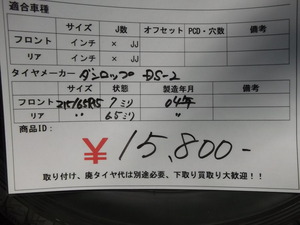 適合車種
サイズ J数 オフセット PCD・穴数 備考
フロント インチ × JJ
リア インチ × JJ
タイヤメーカー ダンロップ DS-2
サイズ 状態 製造年月 備考
フロント 215/65R15 7ミリ 04年
リア 〃 6.5ミリ 〃
商品ID:
¥15,800-
取り付け、廃タイヤ代は別途必要、下取り買取り大歓迎!!